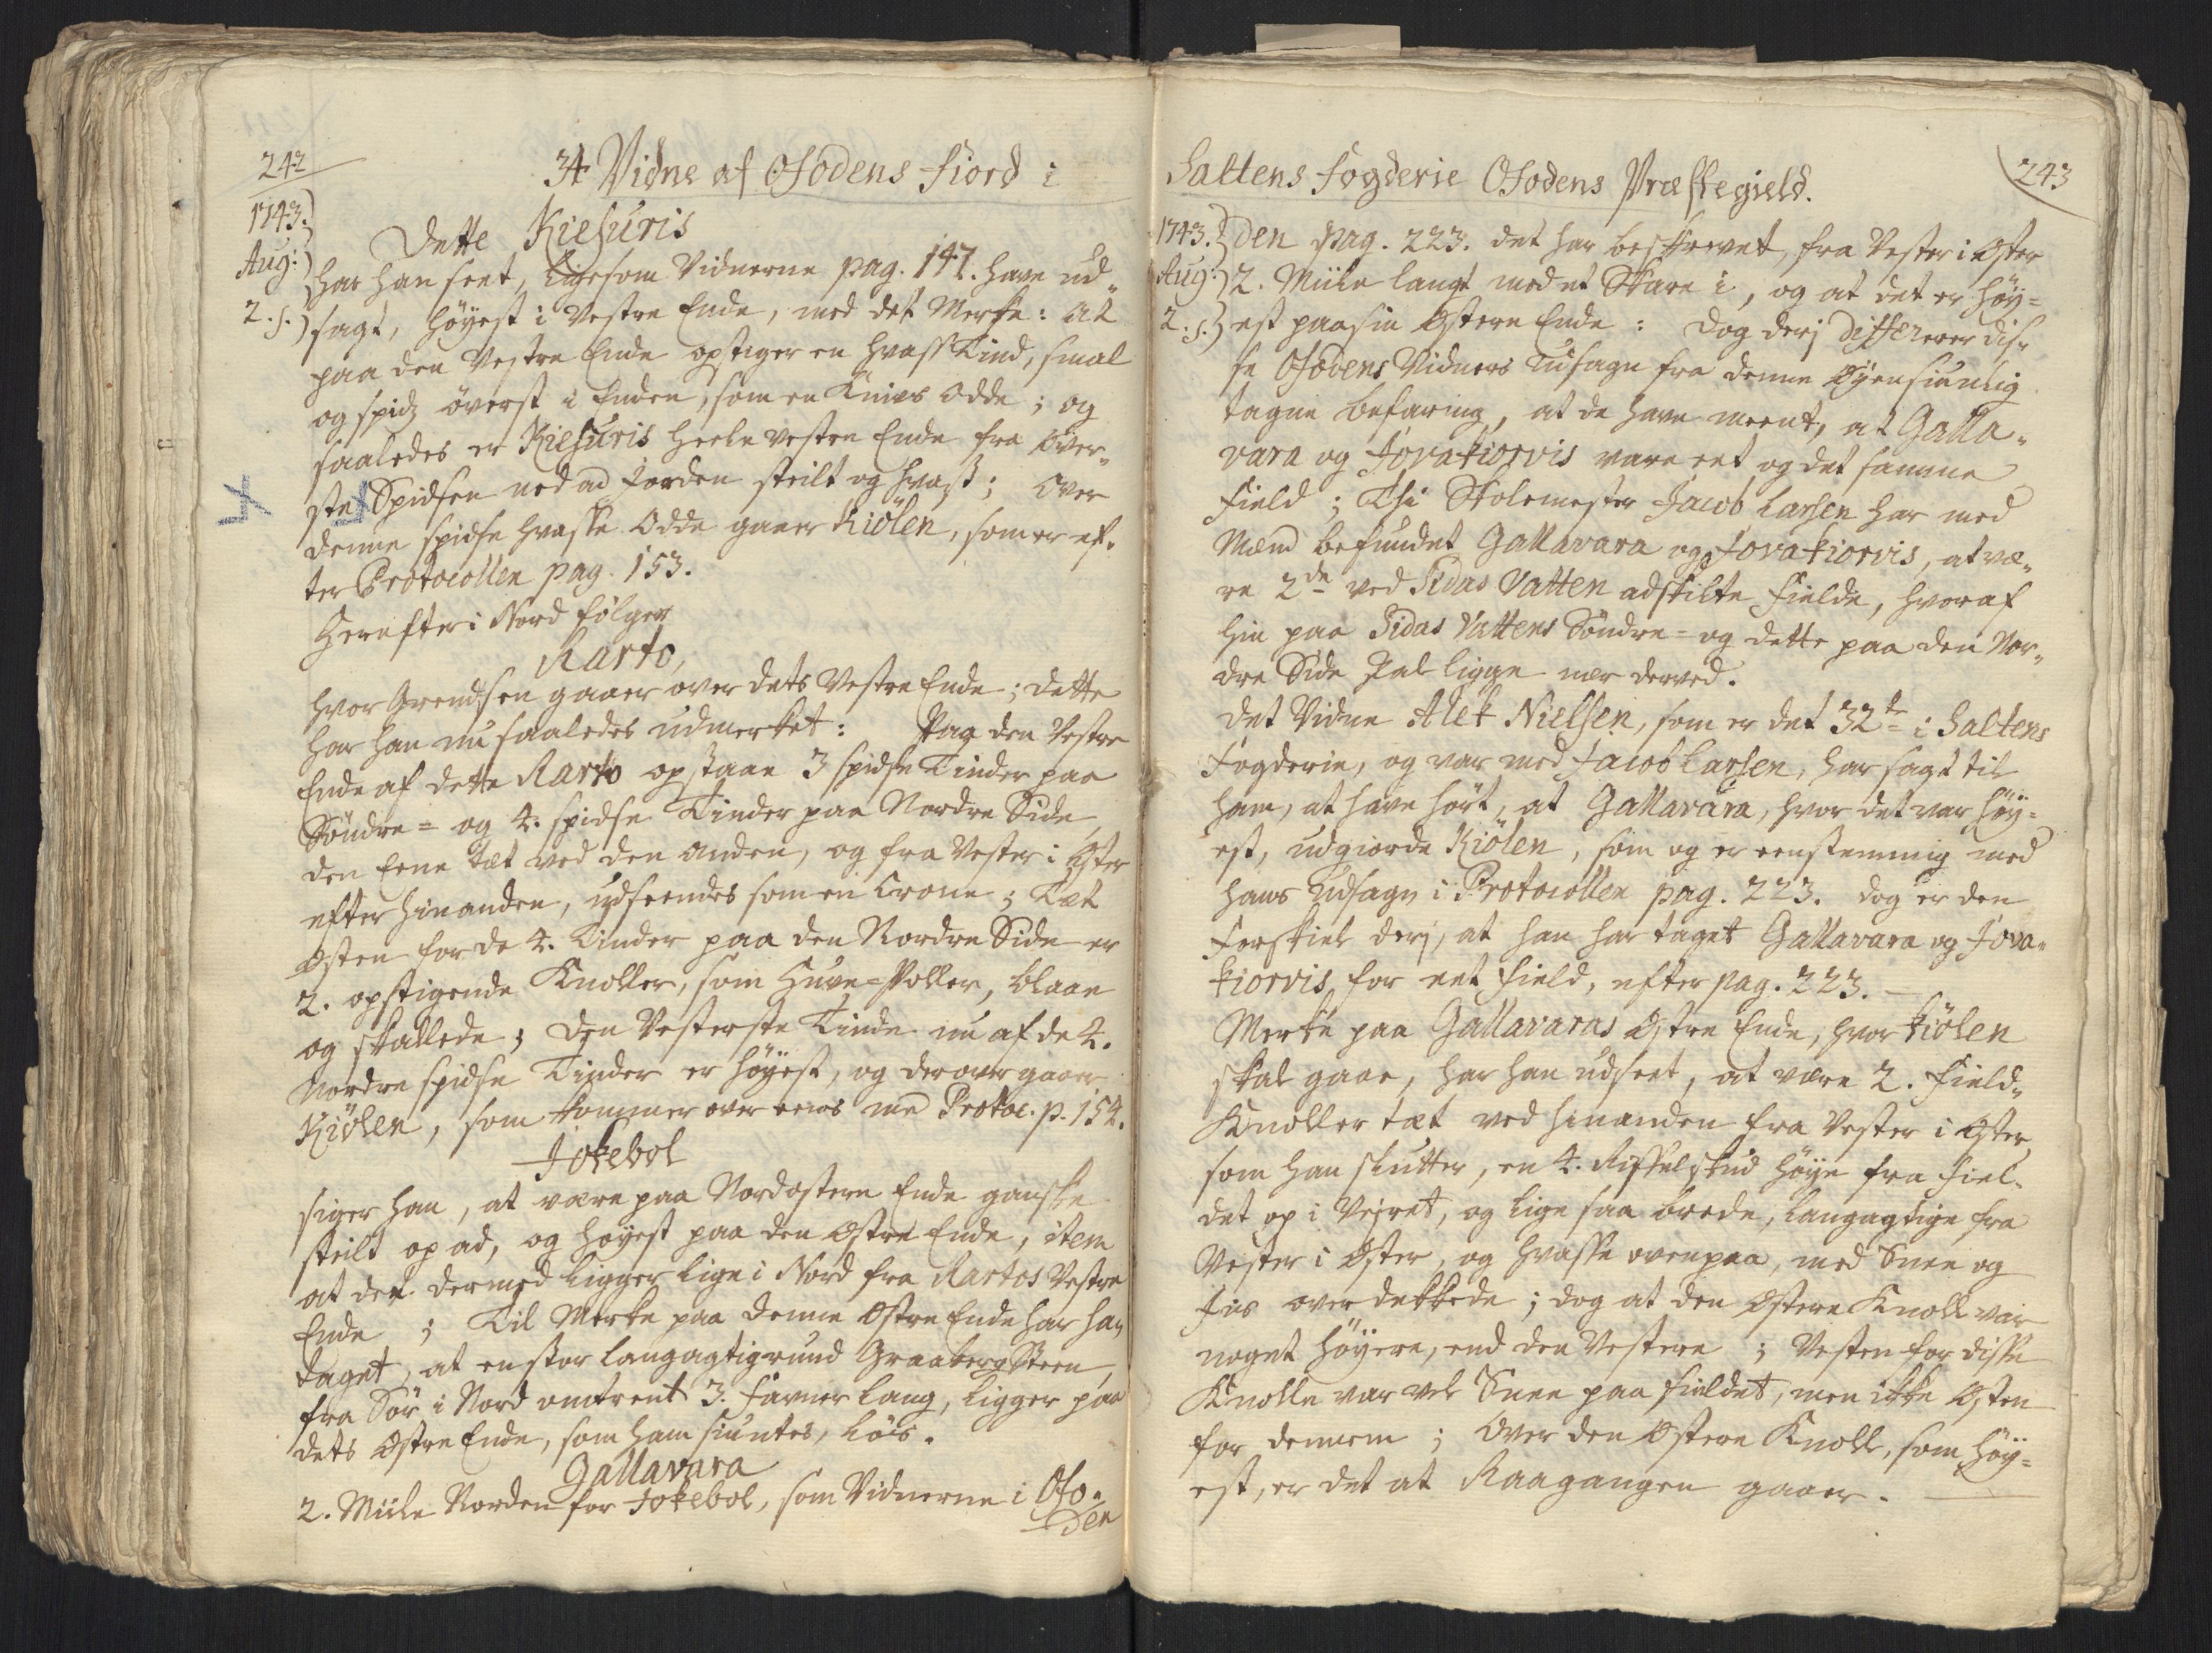 242
34 Vidne af Ofodens Fiord i
1743.
Aug:
2. s.
Dette Kiesuris
har han seet, ligesom Vidnerne pag. 147. have ud„
sagt, høyest i Vestre Ende, med det Merke: at
paa den Vestre Ende opstiger en hvass Tind, smal
og spidz øverst i Enden, som en Knivs Odde; og
saaledes er Kiesuris heele Vestre Ende fra Øver„
ste Spidsen ned ad Jorden steilt og hvass; Over
denne spidse hvasse Odde gaaer Kiölen, som er ef„
ter Protocollen pag. 153.
Herefter i Nord følger
Rarto,
hvor Grendsen gaaer over dets Vestre Ende; dette
har han nu saaledes udmerket: Paa den Vestre
Ende af dette Rarto opstaae 3 spidse Tinder paa
Søndre= og 4. spidse Tinder paa Nordre Side,
den eene tæt ved den anden, og fra Vester i Øster
efter hinanden, udseendes som en Crone; Tæt
Østen for de 4. Tinder paa den Nordre Side er
2. opstigende Knoller, som Huve=Poller, blaae
og skallede; den Vesterste Tinde nu af de 4.
Nordre spidse Tinder er høyest, og derover gaaer
Kiölen, som kommer over eens med Protoc. p. 154.
Jokebol
siger han, at være paa Nordostere Ende ganske
steilt op ad, og høyest paa den Østre Ende, item
at det dermed ligger lige i Nord fra Rartos Vestre
Ende; Til Merke paa denne Østre Ende har han
taget, at en stor langagtigrund Graaberg Steen,
fra Sør i Nord omtrent 3. Favner lang, ligger paa
dets Østre Ende, som ham siuntes, løs.
Gallavara
2. Miile Norden for Jokebol, som Vidnerne i Ofo„
den
Saltens Fogderie Ofodens Præstegield.
243
1743.
Aug:
2. s.
den pag. 223. det har beskrevet, fra Vester i Øster
2. Miile langt med et Skare i, og at det er høy=
est paa sin Østere Ende: dog derj differerer dis„
se Ofodens Vidners Udsagn fra denne Øyensiunlig
tagne befaring, at de have meent, at Galla„
vara og Jovakiorvis vare eet og det samme
Field; Thi Skolemester Jacob Larsen har med
Mænd befundet Gallavara og Jovakiorvis, at væ„
re 2de ved Sidas Vatten adskilte Fielde, hvoraf
hin paa Sidas Vattens Søndre= og dette paa den Nor„
dre Side skal ligge nær derved.
Det Vidne Alek Nielsen, som er det 32te i Saltens
Fogderie, og var med Jacob Larsen, har sagt til
ham, at have hørt, at Gallavara, hvor det var høy=
est, udgiorde Kiölen, som og er eenstemmig med
hans Udsagn i Protocollen pag. 223. dog er den
Forskiel derj, at han har taget Gallavara og Jova„
kiorvis for eet Field, efter pag. 223.
Merke paa Gallavaras Østre Ende, hvor kiölen
skal gaae, har han udseet, at være 2. Field„
Knoller tæt ved hinanden fra Vester i Øster
som han slutter, en 4. Riffelskud høye fra Fiel„
det op i Vejret, og lige saa brede, langagtige fra
Vester i Øster, og hvasse ovenpaa, med Snee og
Jis overdekkede; dog at den Østere Knoll var
noget høyere, end den Vestere; Vesten for disse
Knolle var vel Snee paa Fieldet, men ikke Østen
for dennem; Over den Østere Knoll, som høy=
est, er det at Raagangen gaaer.